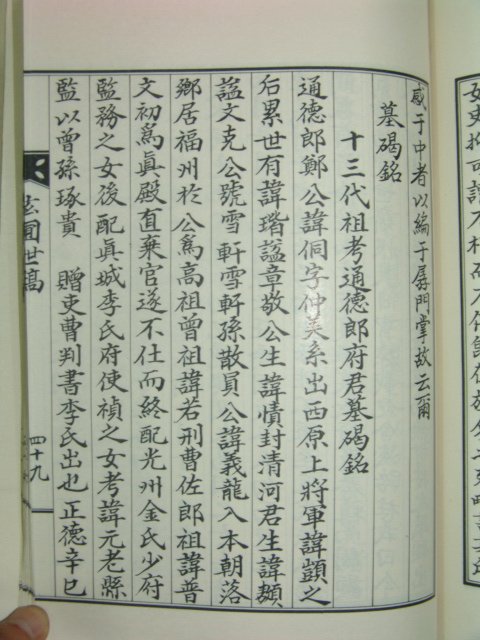 感于中者以編于孱門掌故云爾
墓碣銘
十三代祖考通德郞府君墓碣銘
通德郞鄭公諱侗字仲美系出西原上將軍諱顗之
后累世有諱瑎諡章敬公生諱𢢼封淸河君生諱䫨
諡文克公號雪軒雪軒孫散員公諱義龍入本朝落
鄕居福州於公爲高祖曾祖諱若刑曹佐郞祖諱普
文初爲眞殿直棄官遂不仕而終配光州金氏少府
監務之女後配眞城李氏府使禎之女考諱元老縣
監以曾孫琢貴 贈吏曹判書李氏出也正德辛巳
世稿
四十九